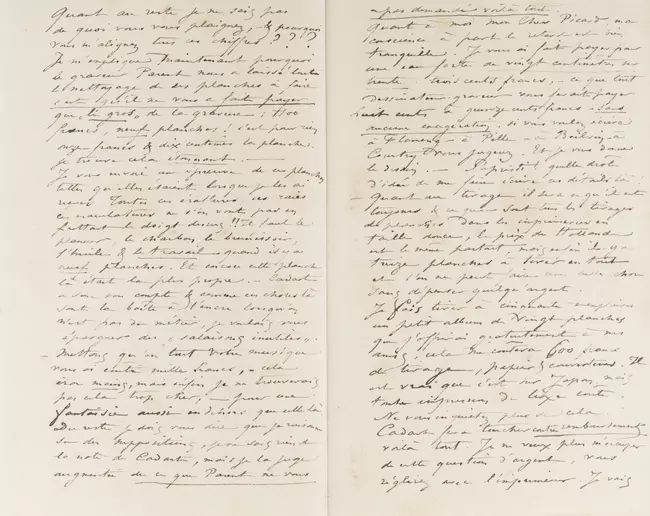 Quant au reste je ne sais pas
de quoi vous vous plaignez, & pourquoi
vous m'alignez tous ces chiffres ? ? ?
Je m'explique maintenant pourquoi
le graveur Parent nous a laissé tout
le nettoyage de ses planches à faire
c'est qu'il ne vous a fait payer
que le gros de la gravure : 100
francs, neuf planches ! c'est pour rien
onze francs & dix centimes la planche.
Je trouve cela étonnant. —
Je vous envoie une épreuve de ces planches
telles qu'elles étaient lorsque je les ai
reçues. Toutes ces ces raies
ne s'en vont pas en
frottant le doigt dessus !! Il faut le
le charbon le brunissoir,
l'huile & le travail quand il y a
neuf planches. Et encore cette planche
là était la plus propre. — Cadart
a son compte & comme
sont la boîte à l'encre lorsqu'on
n'est pas du métier, je voulais vous
épargner des « salaisons inutiles ».
— Mettons qu'en tout votre musique
vous ai coûté mille francs, — cela
sera moins, mais enfin je ne trouverais
pas cela trop cher, — pour une
fantaisie aussi que celle là
du reste je dois vous dire que je raisonne
sur des suppositions, je ne sais rien de
la note de Cadart, mais je la juge
augmentée de ce que Parent ne vous
a pas demandé voilà tout.
Quant à moi mon cher Picard ma
conscience à part le retard est très
tranquille. Je vous ai fait payer pour
une eau forte de vingt centimètres sur
trente trois cents francs, — ce que tout
dessinateur graveur vous ferait payer
huit cents à quinze cents francs — sans
aucune exagération, si vous voulez écrire
à Flameng — à — à —
vous jugerez. Et je vous donne
le dessin. — quelle drôle
d'idée de me faire écrire ces détails là
— Quant au tirage il sera ce qu'il est
toujours & ce que sont tous les tirages
de planches dans les imprimeries en
taille douce, le prix de Hollande
est le même partout mais quand il y a
treize planches à tirer en tout
et l'on ne peut faire une belle chose
sans dépenser quelque argent.
Je fais tirer à cinquante exemplaires
un petit album de vingt planches
que j'offrirai gratuitement à mes
amis, cela me coûtera 600 francs
de tirage, papier & couverture. Il
est vrai que c'est sur Japon, mais
toute impression de luxe coûte.
Ne vous inquiétez plus de cela.
Cadart fera toucher contre remboursement
voilà tout. Je ne veux plus m'occuper
de cette question d'argent, vous
règlerez avec l'imprimeur. Je vais